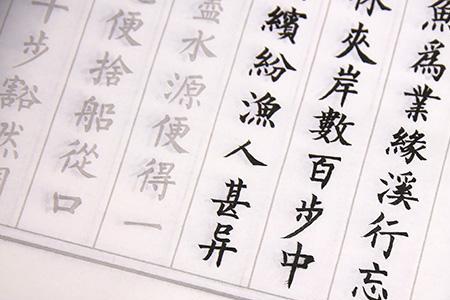 魚為業緣溪行忘
林夾岸數百步中
繽紛漁人甚异
盡水源便得一
便捨船從口
十步豁然